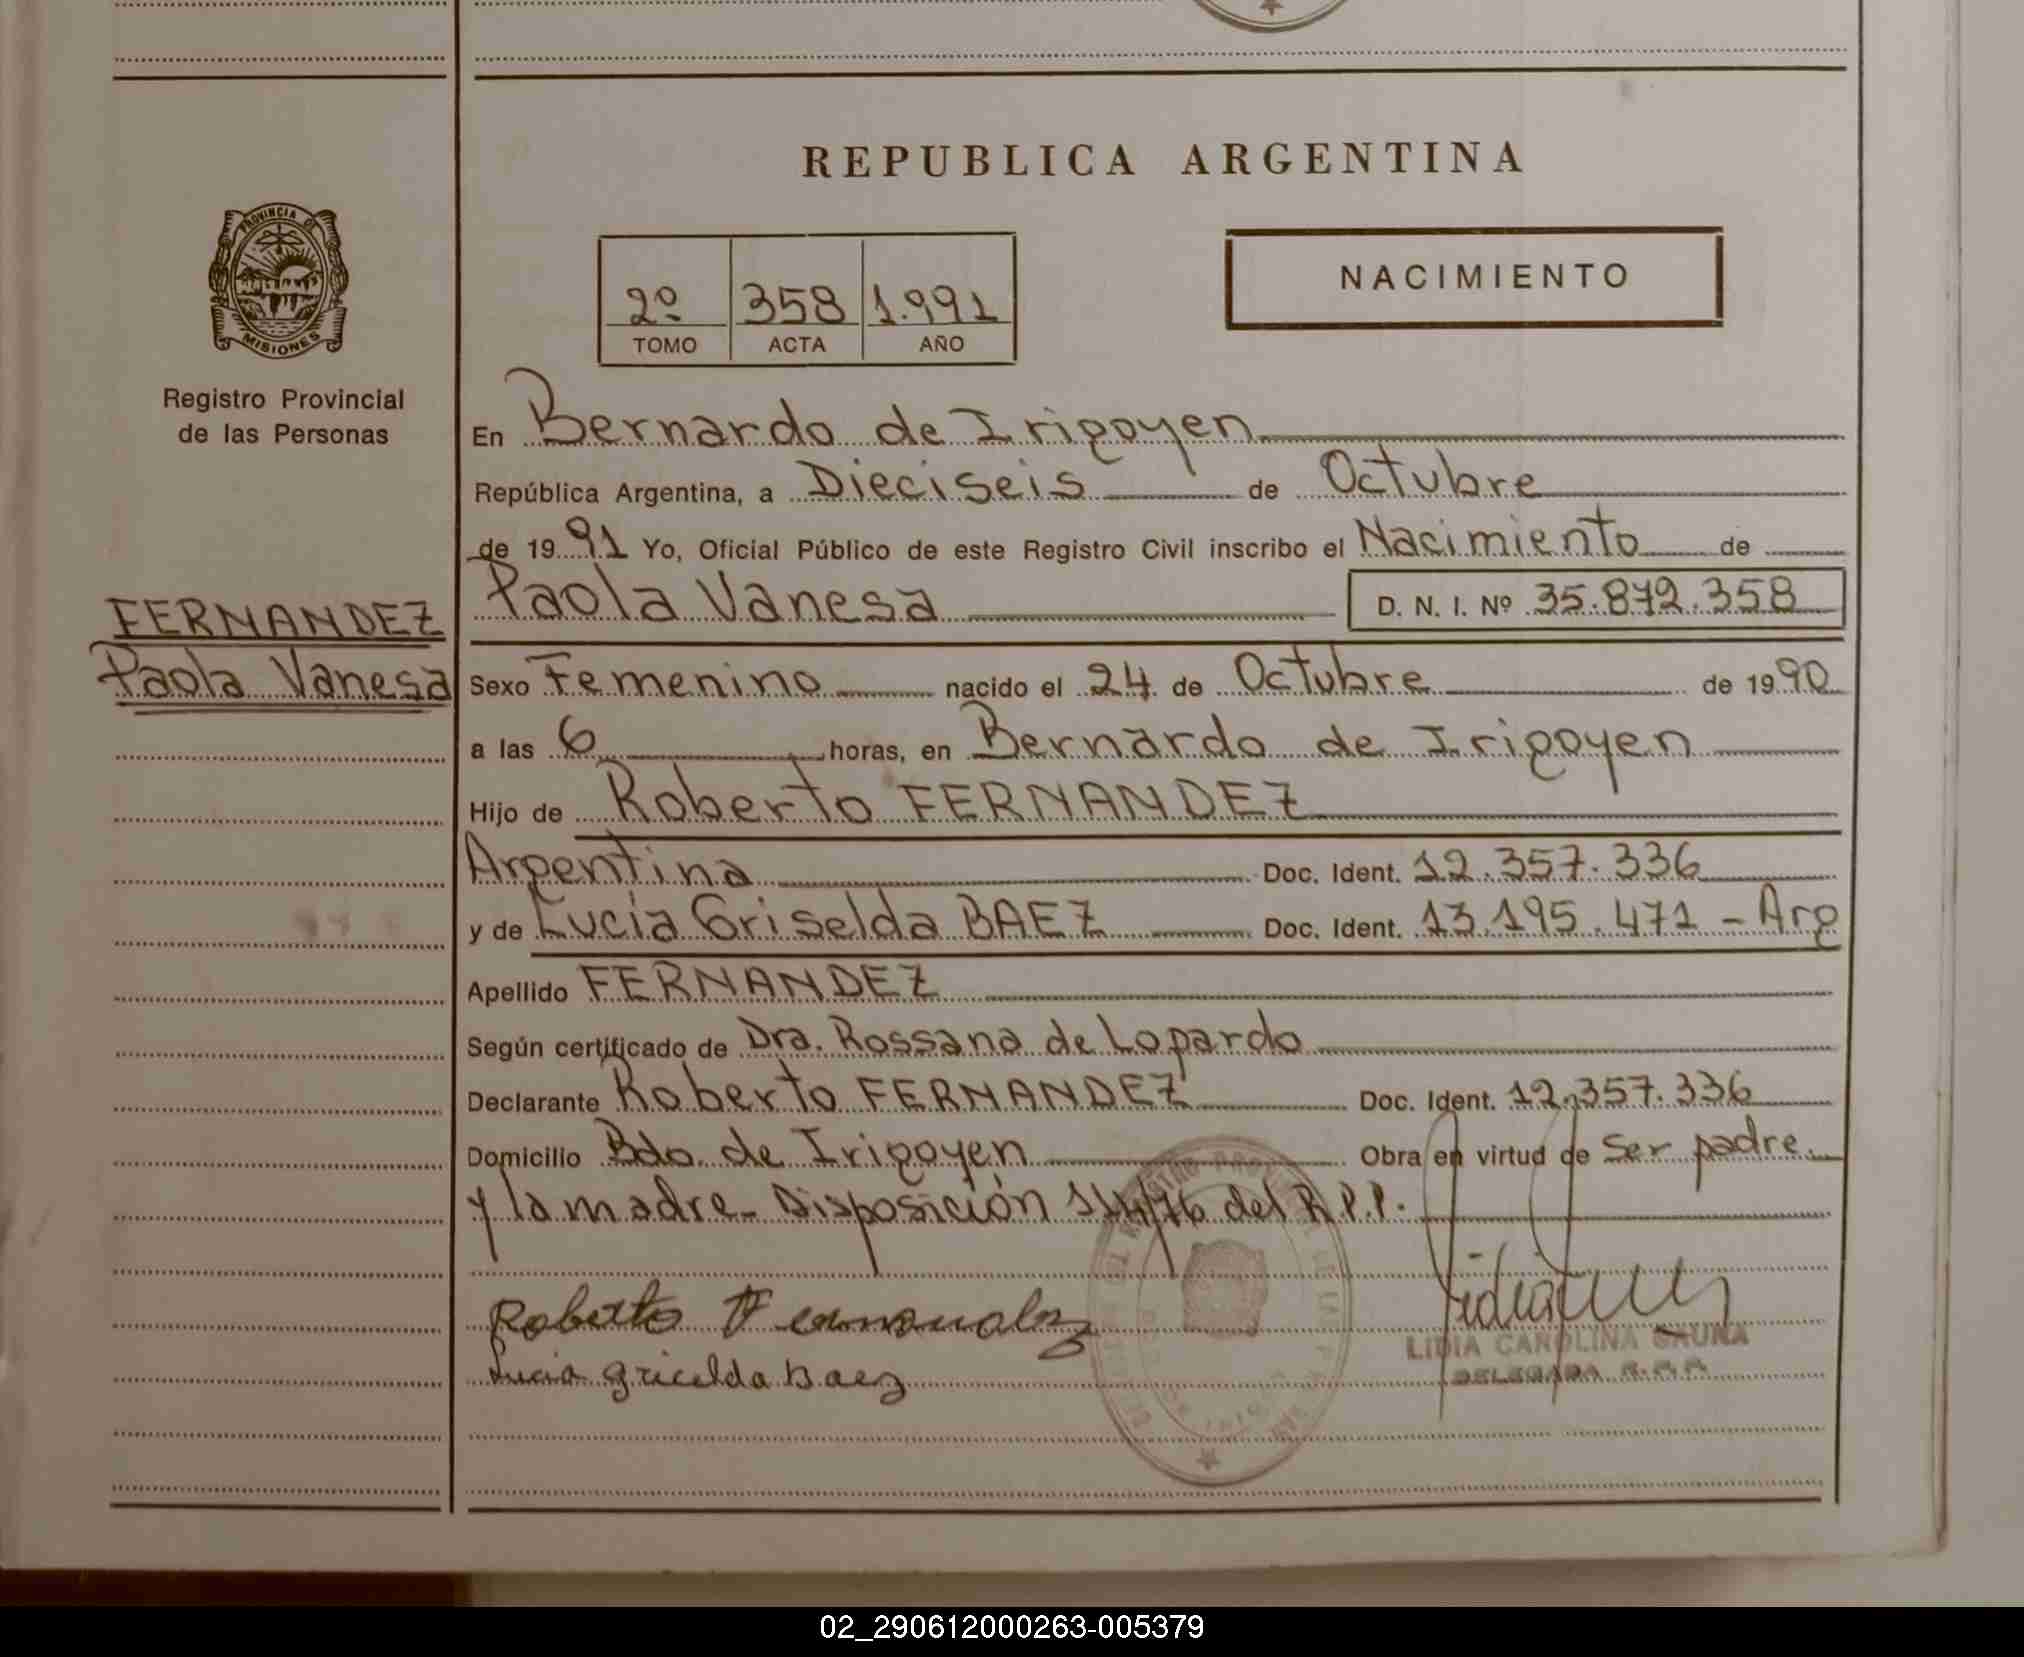 REPUBLICA ARGENTINA
PROVINCIA DE
MISIONES
Registro Provincial
de las Personas
NACIMIENTO
2º 358 1.991
TOMO ACTA AÑO
En Bernardo de Irigoyen
República Argentina, a Dieciseis de Octubre
de 1991 Yo, Oficial Público de este Registro Civil inscribo el Nacimiento de
Paola Vanesa D. N. I. Nº 35.872.358
FERNANDEZ
Paola Vanesa
Sexo Femenino nacido el 24 de Octubre de 1990
a las 6 horas, en Bernardo de Irigoyen
Hijo de Roberto FERNANDEZ
Argentina Doc. Ident. 12.357.336
y de Lucia Griselda BAEZ Doc. Ident. 13.195.471 - Arg
Apellido FERNANDEZ
Según certificado de Dra. Rossana de Lopardo
Declarante Roberto FERNANDEZ Doc. Ident. 12.357.336
Domicilio Bdo. de Irigoyen Obra en virtud de ser padre.
y la madre - Disposición 114/76 del R.P.P.
Roberto Fernandez
Lucia Gricelda Baez
LIDIA CAROLINA
DELEGADA R.P.P.
02_290612000263-005379